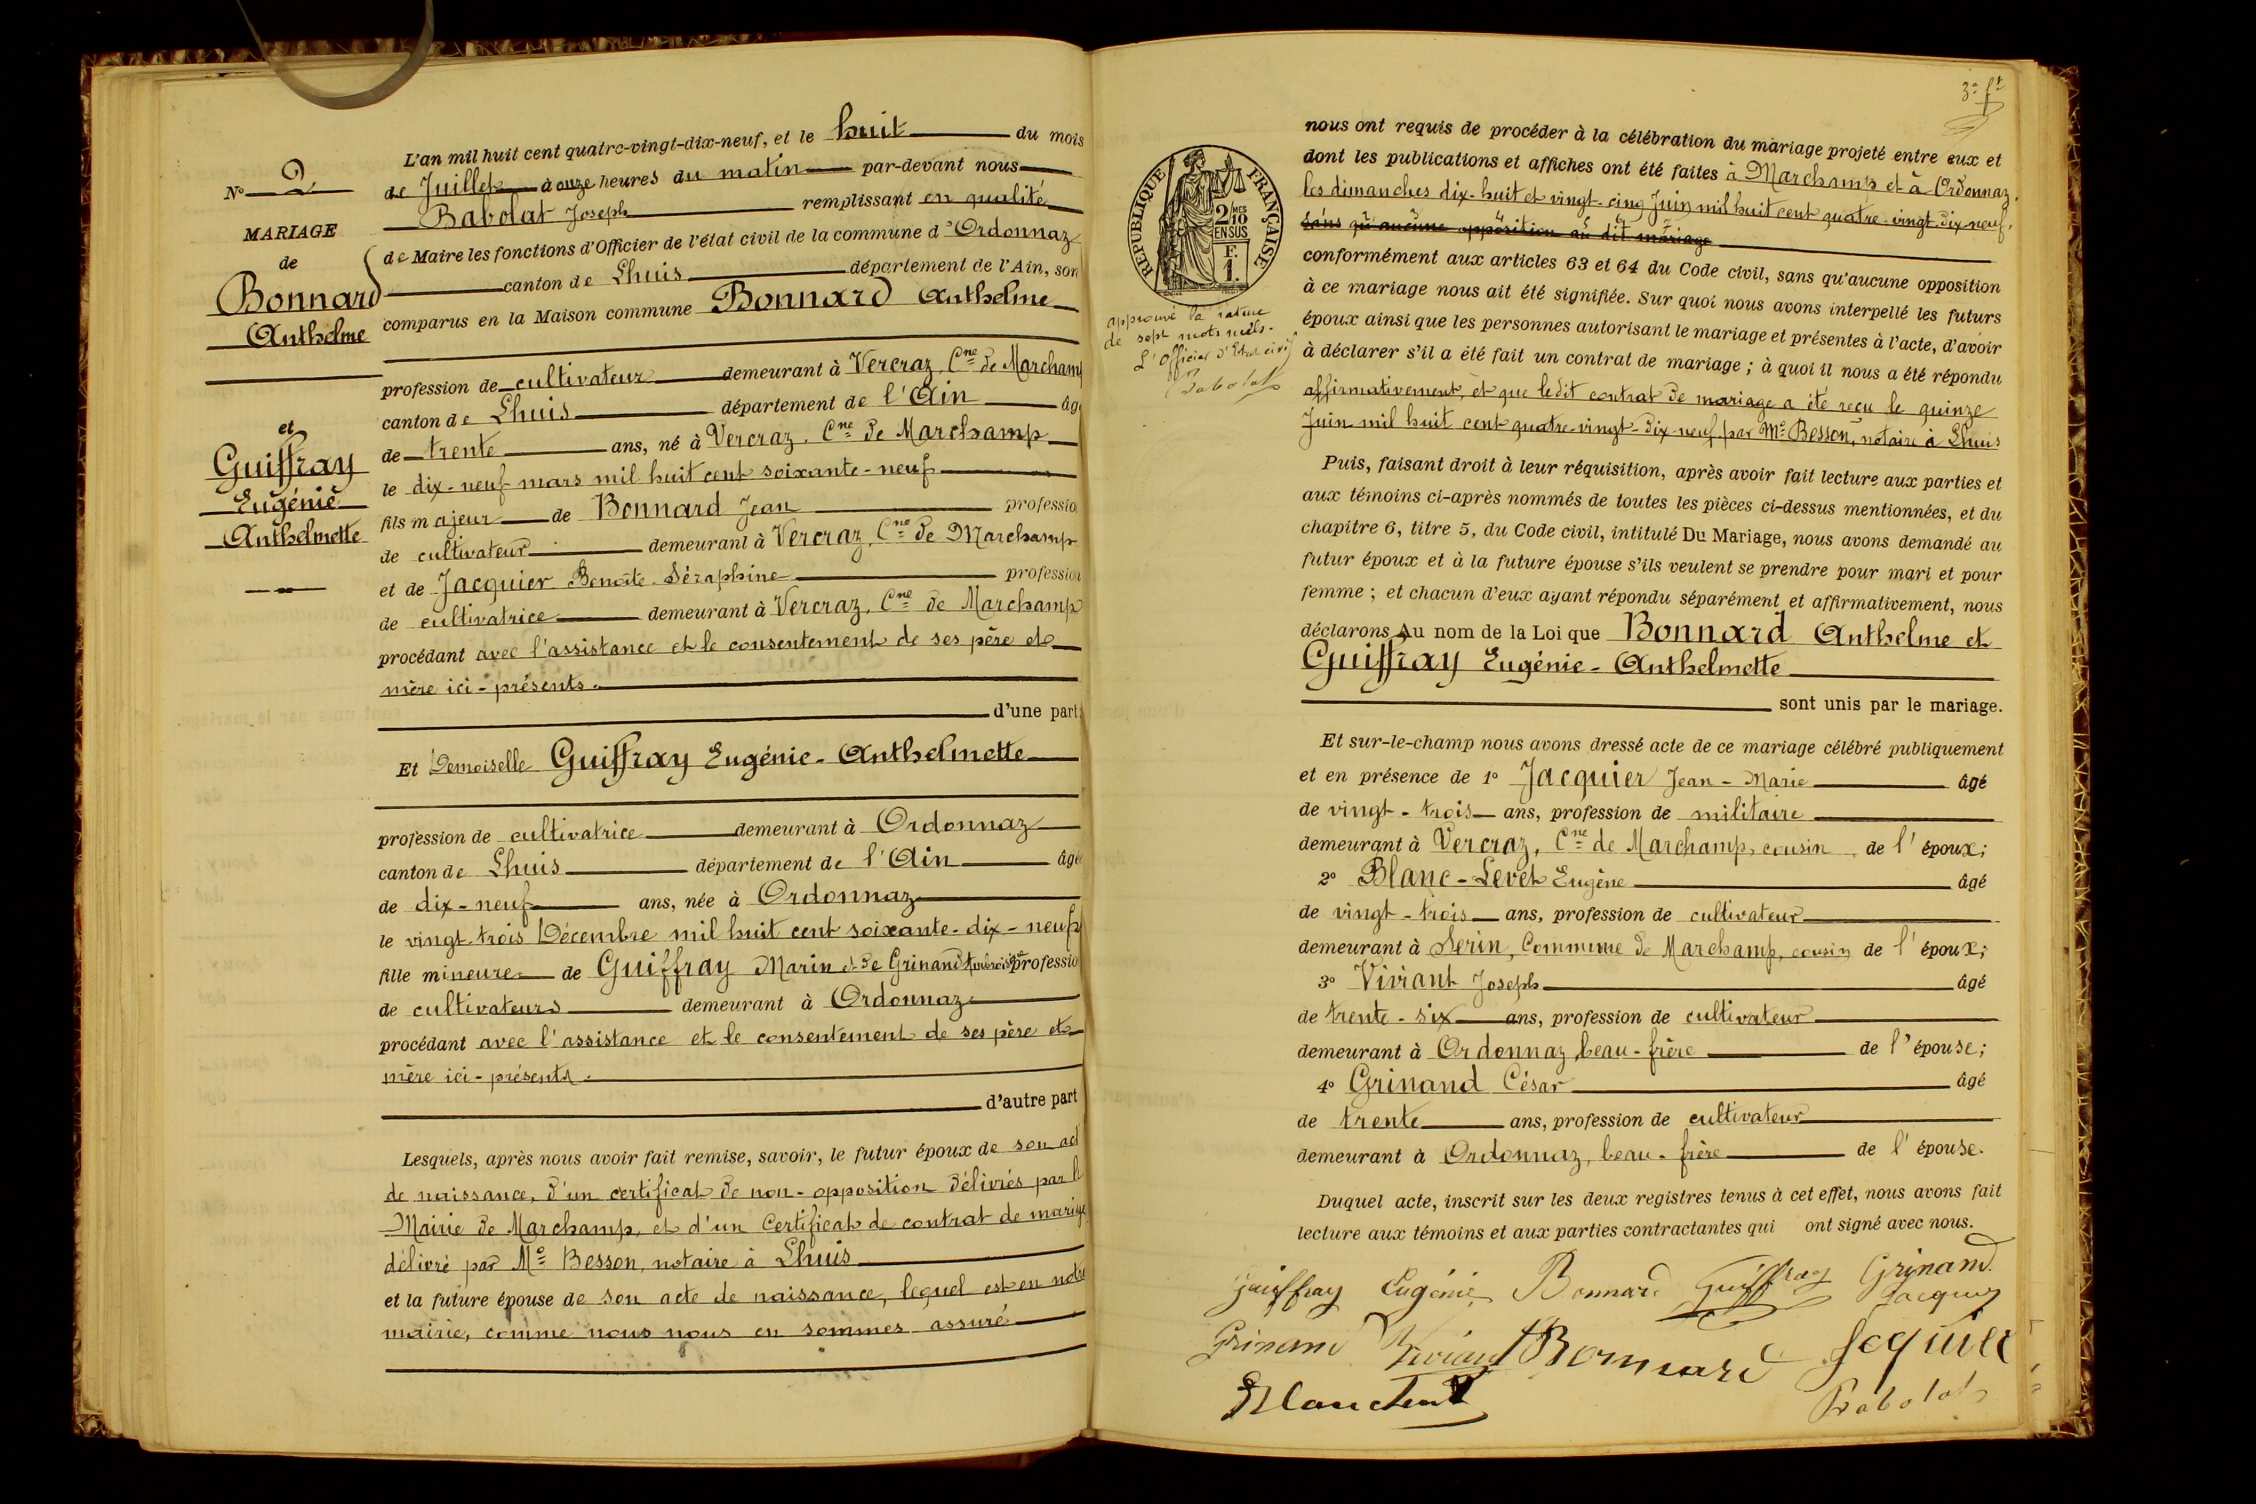 N° 2
MARIAGE
de
Bonnard
Anthelme
et
Guiffray
Eugénie
Anthelmette
L'an mil huit cent quatre-vingt-dix-neuf, et le huit du mois
de Juillet à onze heures du matin par-devant nous
Babolat Joseph remplissant en qualité
de Maire les fonctions d'Officier de l'état civil de la commune d'Ordonnaz
canton de Lhuis département de l'Ain, son
comparus en la Maison commune Bonnard Anthelme
profession de cultivateur demeurant à Vercraz, Cne de Marchamp
canton de Lhuis département de l'Ain âg
de trente ans, né à Vercraz. Cne de Marchamp
le dix-neuf mars mil huit cent soixante-neuf
fils majeur de Bonnard Jean professio
de cultivateur demeurant à Vercraz, Cne de Marchamp
et de Jacquier Benoîte Séraphine profession
de cultivatrice demeurant à Vercraz, Cne de Marchamp
procédant avec l'assistance et le consentement de ses père et
mère ici-présents.
d'une part
Et Demoiselle Guiffray Eugénie-Anthelmette
profession de cultivatrice demeurant à Ordonnaz
canton de Lhuis département de l'Ain âgé
de dix-neuf ans, née à Ordonnaz
le vingt-trois Décembre mil huit cent soixante-dix-neuf
fille mineure de Guiffray Marin et de Grinand professio
de cultivateurs demeurant à Ordonnaz
procédant avec l'assistance et le consentement de ses père et
mère ici-présents.
d'autre part
Lesquels, après nous avoir fait remise, savoir, le futur époux de son act
de naissance, d'un certificat de non-opposition délivrés par l
Mairie de Marchamp, et d'un Certificat de contrat de mariage
délivré par Me Besson, notaire à Lhuis
et la future épouse de son acte de naissance, lequel est en notre
mairie, comme nous nous en sommes assuré
RÉPUBLIQUE FRANÇAISE
2/10 MES
EN SUS
F.
1.
approuvé la rature
de sept mots nuls.
L'Officier d'Etat civil
Babolat
3e ft
nous ont requis de procéder à la célébration du mariage projeté entre eux et
dont les publications et affiches ont été faites à Marchamp et à Ordonnaz,
les dimanches dix-huit et vingt-cinq Juin mil huit cent quatre-vingt-dix-neuf,
sans qu'aucune opposition au dit mariage
conformément aux articles 63 et 64 du Code civil, sans qu'aucune opposition
à ce mariage nous ait été signifiée. Sur quoi nous avons interpellé les futurs
époux ainsi que les personnes autorisant le mariage et présentes à l'acte, d'avoir
à déclarer s'il a été fait un contrat de mariage ; à quoi il nous a été répondu
affirmativement, et que ledit contrat de mariage a été reçu le quinze
Juin mil huit cent quatre-vingt-dix-neuf par Me Besson, notaire à Lhuis
Puis, faisant droit à leur réquisition, après avoir fait lecture aux parties et
aux témoins ci-après nommés de toutes les pièces ci-dessus mentionnées, et du
chapitre 6, titre 5, du Code civil, intitulé Du Mariage, nous avons demandé au
futur époux et à la future épouse s'ils veulent se prendre pour mari et pour
femme ; et chacun d'eux ayant répondu séparément et affirmativement, nous
déclarons Au nom de la Loi que Bonnard Anthelme et
Guiffray Eugénie-Anthelmette
sont unis par le mariage.
Et sur-le-champ nous avons dressé acte de ce mariage célébré publiquement
et en présence de 1° Jacquier Jean-Marie âgé
de vingt-trois ans, profession de militaire
demeurant à Vercraz, Cne de Marchamp, cousin de l'époux;
2° Blanc-Levet Eugène âgé
de vingt-trois ans, profession de cultivateur
demeurant à Serin, Commune de Marchamp, cousin de l'époux;
3° Viviant Joseph âgé
de trente-six ans, profession de cultivateur
demeurant à Ordonnaz, beau-frère de l'épouse;
4° Grinand César âgé
de trente ans, profession de cultivateur
demeurant à Ordonnaz, beau-frère de l'épouse.
Duquel acte, inscrit sur les deux registres tenus à cet effet, nous avons fait
lecture aux témoins et aux parties contractantes qui ont signé avec nous.
Guiffray Eugénie Bonnard Guiffray Grinand
Grinand Viviant Bonnard
Babolat